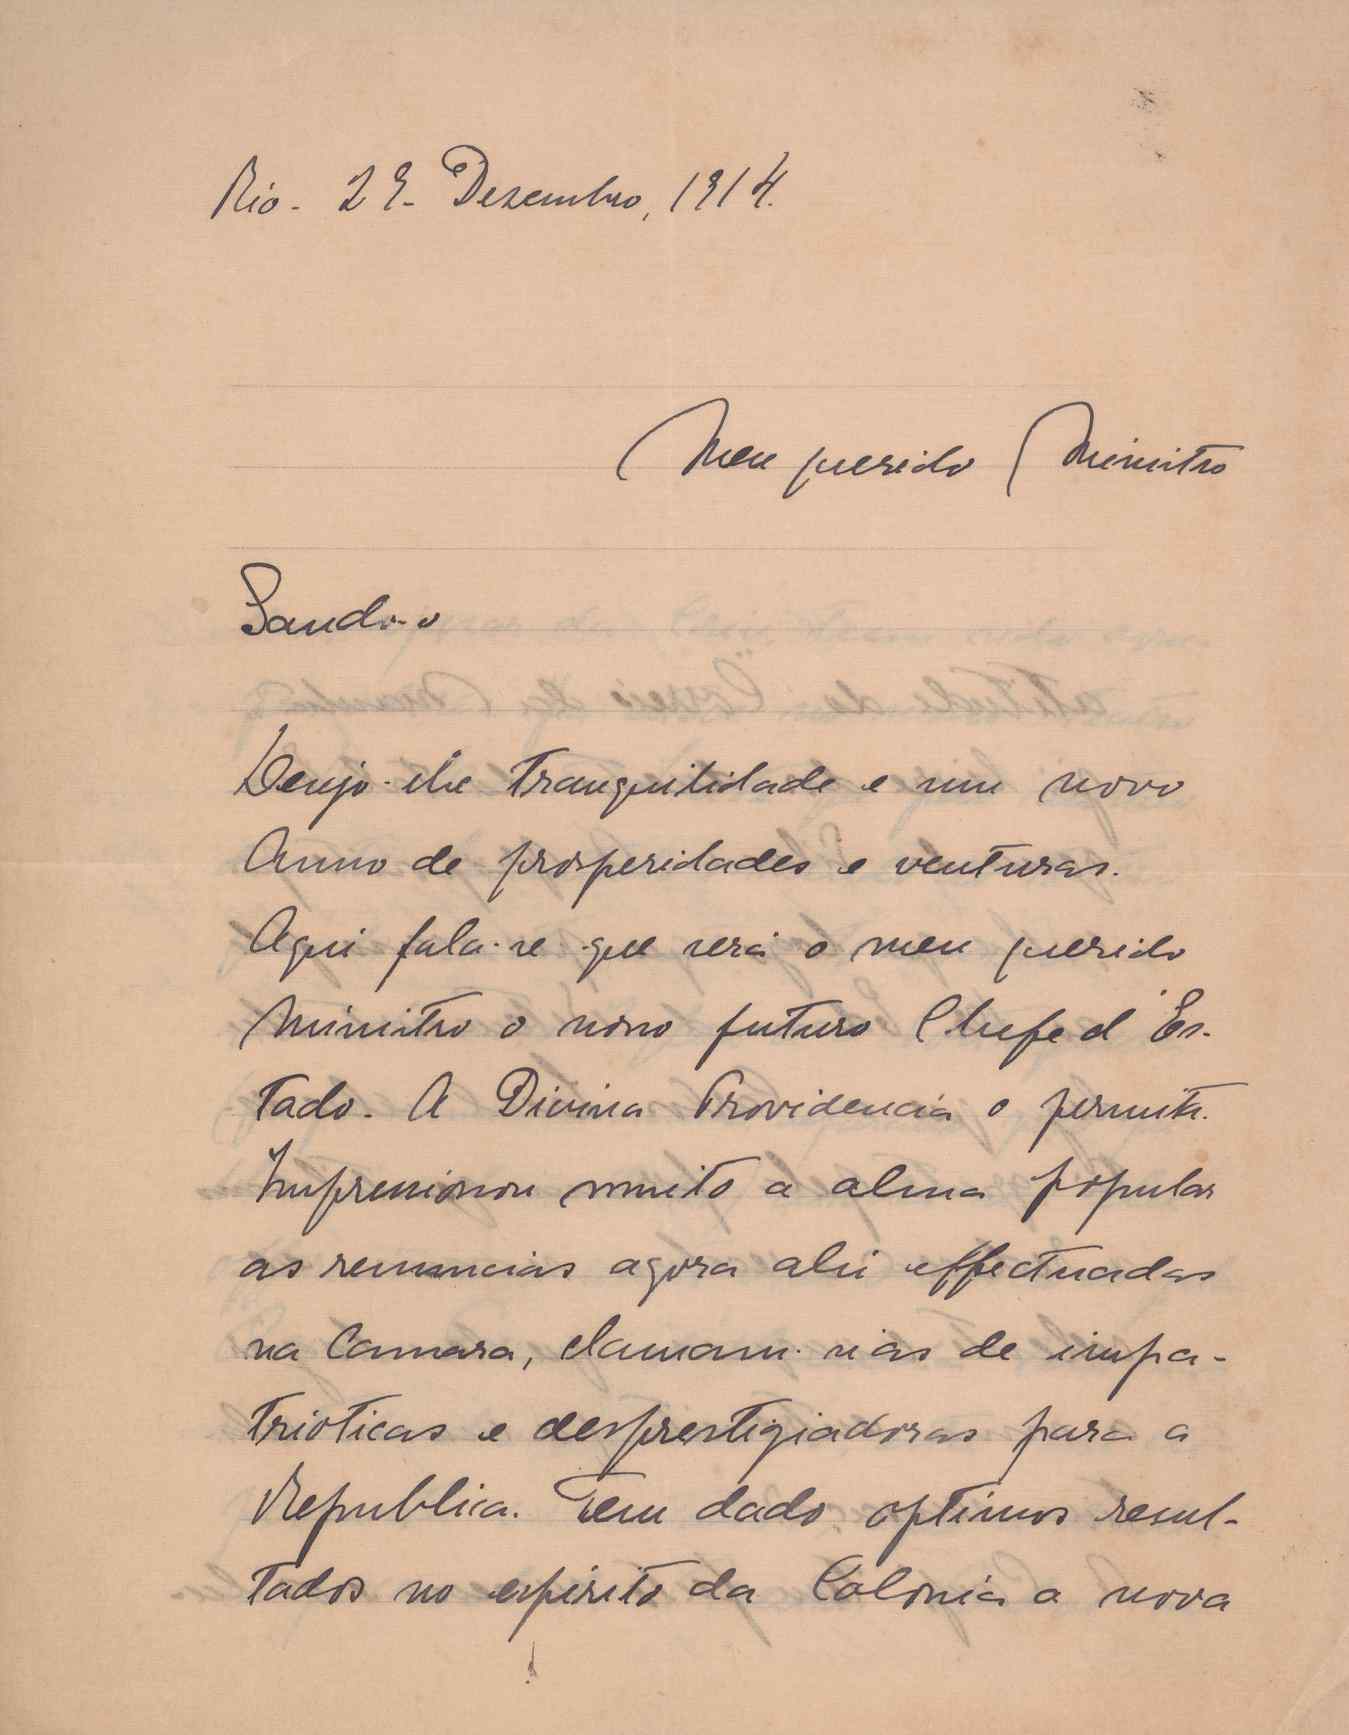 Rio - 29 - Dezembro, 1914.
Meu querido Ministro
Saudo-o
Desejo-lhe tranquilidade e um novo
Anno de prosperidades e venturas.
Aqui fala-se que será o meu querido
Ministro o novo futuro Chefe d'Es-
tado. A Divina Providencia o permita.
Impressionou muito a alma popular
as renuncias agora ahi effectuadas
na Camara, clamam-nas de impa-
trioticas e desprestigiadoras para a
Republica. Tem dado optimos resul-
tados no espirito da Colonia a nova